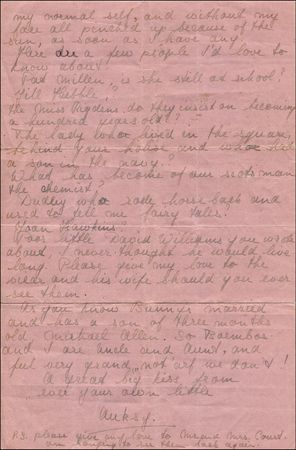 my normal self, and without my
face all pinched up because of the
sun, as soon as I have any.
Here are a few people I'd love to
know about!
Pat Millen, is she still at school?
Jill Tuttle?
The Miss do they insist on becoming
a hundred years old?
The lady who lived in the square,
behind your house and who had
a son in the navy?
What has become of our scotsman
the chemist?
Dudley who rode horse back and
used to tell me fairy tales.
Joan Hawkins.
Poor little David Williams you wrote
about, I never thought he would live
long. Please give my love to the
vicar and his wife should you ever
see them.
As you know Bunny's married
and has a son of three months
old, Michael Allen. So
and I are uncle and Aunt, and
feel very grand, not arf we don't!
A great big kiss from
ever your own little

P.S. please give my love to Mr and Mrs. Court.
am longing to see them back again.